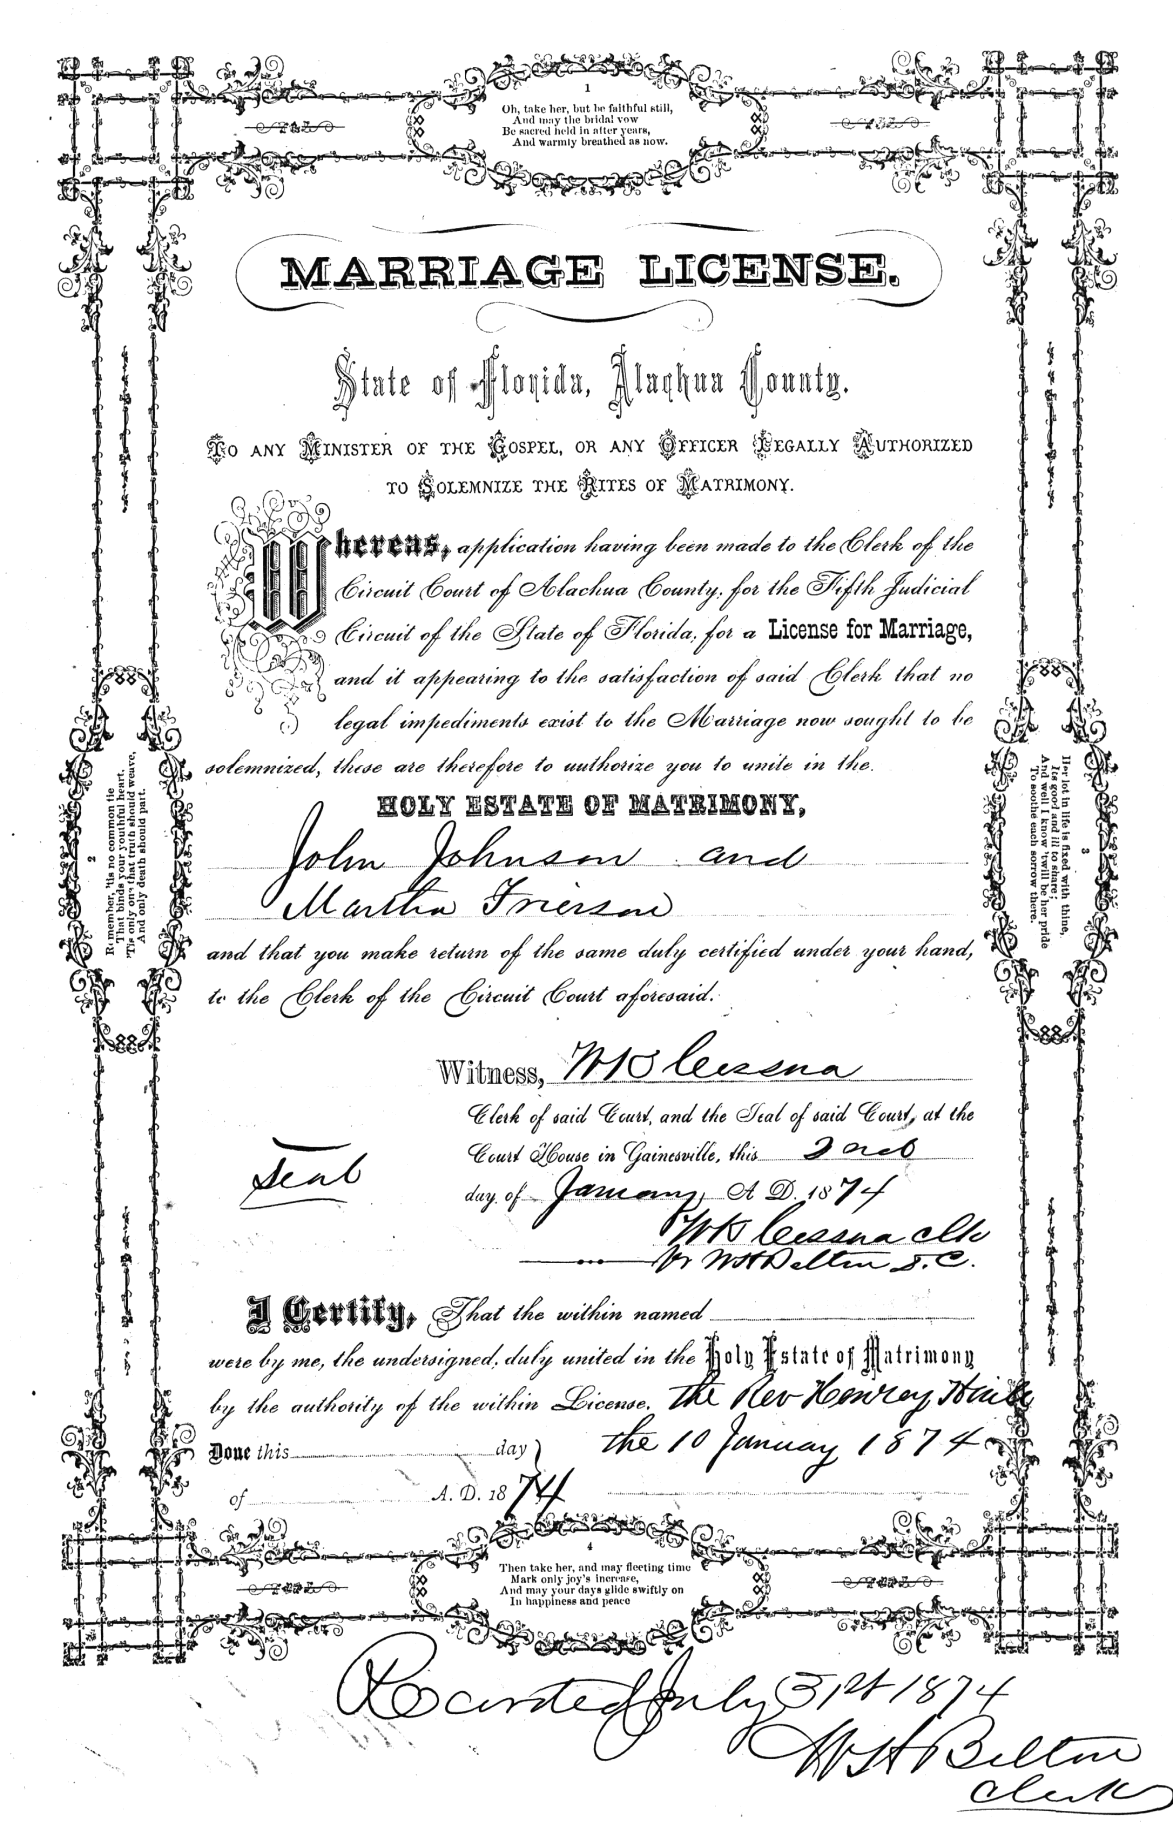 1
Oh, take her, but be faithful still,
And may the bridal vow
Be sacred held in after years,
And warmly breathed as now.
MARRIAGE LICENSE.
State of Florida, Alachua County.
TO ANY MINISTER OF THE GOSPEL, OR ANY OFFICER LEGALLY AUTHORIZED
TO SOLEMNIZE THE RITES OF MATRIMONY.
Whereas, application having been made to the Clerk of the
Circuit Court of Alachua County, for the Fifth Judicial
Circuit of the State of Florida, for a License for Marriage,
and it appearing to the satisfaction of said Clerk that no
legal impediments exist to the Marriage now sought to be
solemnized, these are therefore to authorize you to unite in the
HOLY ESTATE OF MATRIMONY,
John Johnson and
Martha Frierson
and that you make return of the same duly certified under your hand,
to the Clerk of the Circuit Court aforesaid.
2
Remember, 'tis no common tie
That binds your youthful heart,
'Tis only one that truth should weave,
And only death should part.
3
Her lot in life is fixed with thine,
Its good and ill to share;
And well I know 'twill be her pride
To soothe each sorrow there.
Witness, WK Cessna
Clerk of said Court, and the Seal of said Court, at the
Court House in Gainesville, this 2nd
day of January, A D. 1874
Seal
WK Cessna Clk
Pr WH Belton D.C.
I Certify, That the within named
were by me, the undersigned, duly united in the Holy Estate of Matrimony
by the authority of the within License. the Rev Henrey
Done this day the 10 January 1874
of A. D. 1874
4
Then take her, and may fleeting time
Mark only joy's increase,
And may your days glide swiftly on
In happiness and peace
Recorded July 31st 1874
WH Belton
Clerk